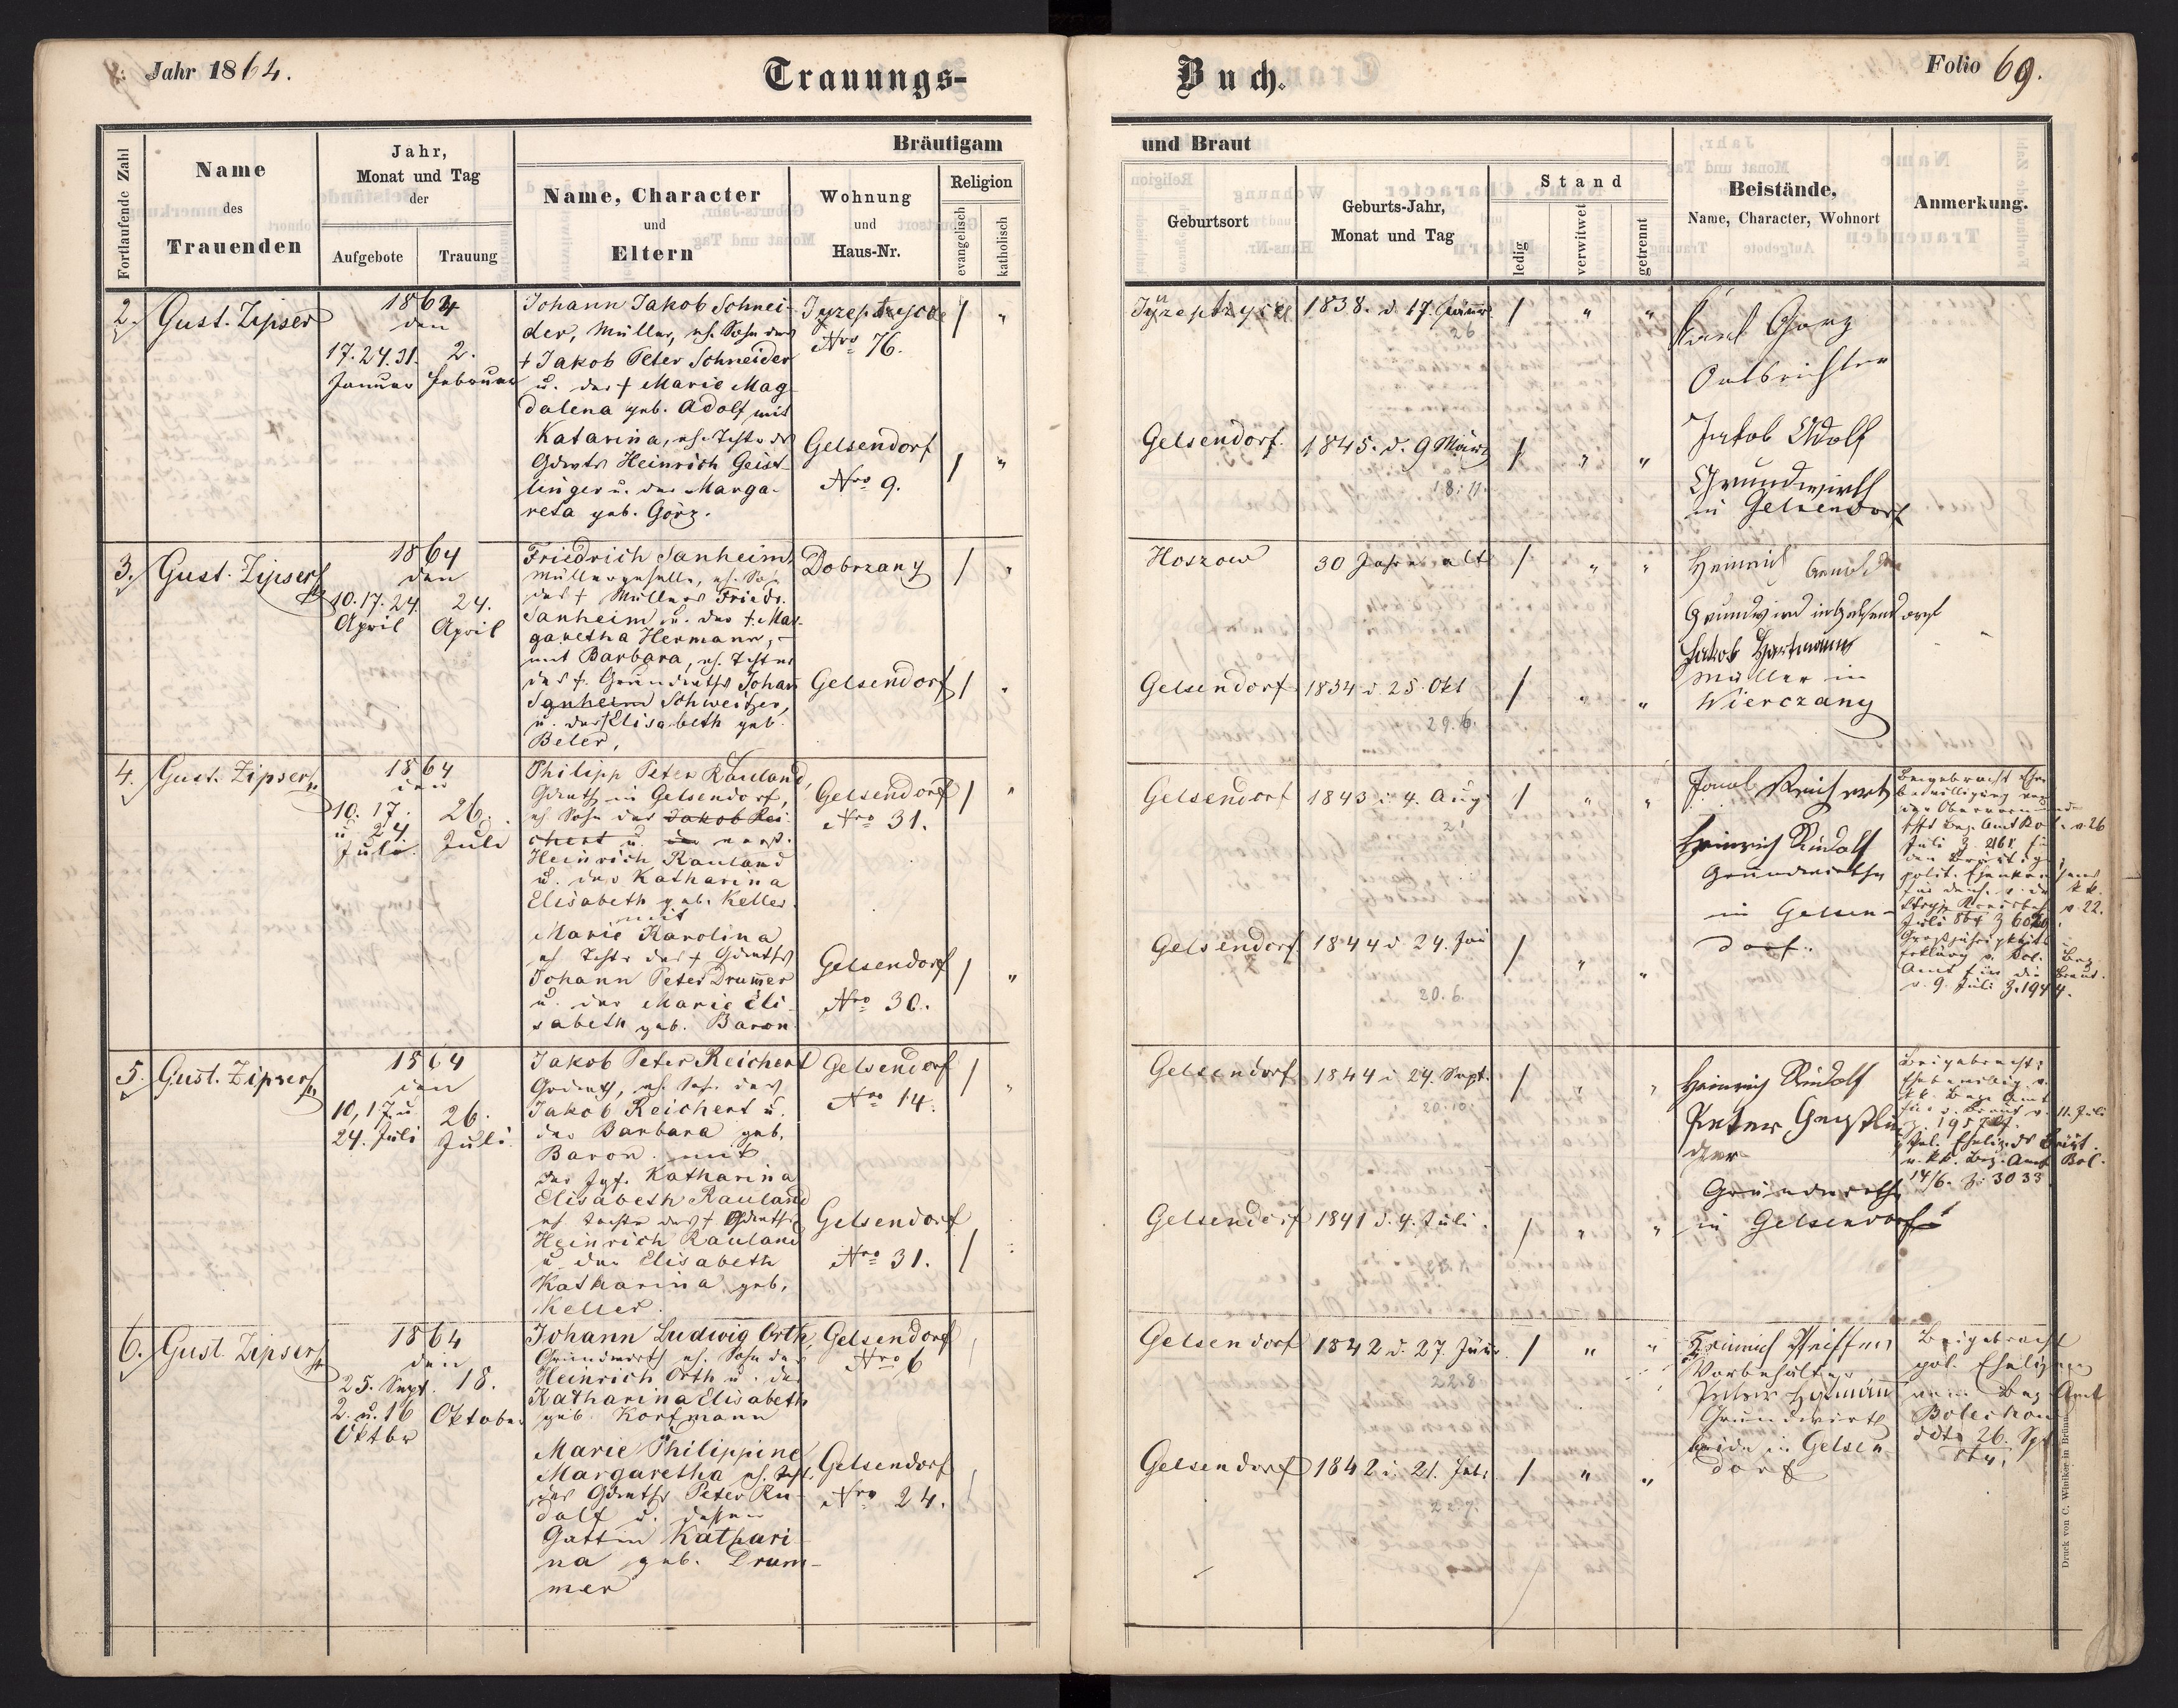 Jahr 1864.
Trauungs-
Buch.
Folio 69.
Fortlaufende Zahl
Name
des
Trauenden
Jahr,
Monat und Tag
der
Aufgebote
Trauung
Bräutigam
und Braut
Name, Character
und
Eltern
Wohnung
und
Haus-Nr.
Religion
evangelisch
katholisch
Geburtsort
Geburts-Jahr,
Monat und Tag
Stand
ledig
verwitwet
getrennt
Beistände,
Name, Character, Wohnort
Anmerkung.
2. Gust. Zipser
1864
den
17. 24. 31.
Januar
2.
Februar
Johann Jakob Schnei-
der, Müller, eh. Sohn des
† Jakob Peter Schneider
u. der † Marie Mag
dalena geb. Adolf mit
Katarina, eh. Tochter des
Gdwts Heinrich Geist-
linger u. der Marga-
reta geb. Görz.
Nro 76.
Gelsendorf
Nro 9.
/ "
/ "
1838. d. 17. Jänn
26
/ " "
Gelsendorf.
1845. d. 9 März
18: 11.
/ " "
Karl Gorz
Ortsrichter
Jakob Adolf
Grundwirth
in Gelsendorf
3. Gust. Zipser
1864
den
10. 17. 24.
April
24.
April
Friedrich Sanheim
Müllergeselle, eh. So.
des † Müllers Friedr.
Sanheim u. der †. Mar-
garetha Hermann, -
mit Barbara, eh. Tochter
des †. Grundwths Johan
Sanheim Schweitzer,
u. der † Elisabeth geb.
Beler,
Dobrzany
Gelsendorf
/ "
/ "
Hoszow
30 Jahre alt
/ " "
Gelsendorf
1834 d. 25. Okt
29. 6.
/ " "
Heinrich
Grundwird in Gelsendorf
Jakob Hartmann
Müller in
Wierczany
4. Gust. Zipser
1864
den
10. 17.
u 24
Juli.
26.
Juli
Philipp Peter Rauland,
Gdwth in Gelsendorf,
eh Sohn des Jakob Rei-
chert u.
Heinrich Rauland
u. der Katharina
Elisabeth geb. Keller.
mit
Marie Karolina
eh Tochtr des † Gdwths
Johann Peter Drum̄er
u. der Marie Eli-
sabeth geb. Baron
Gelsendorf
Nro 31.
Gelsendorf
Nro 30.
/ "
/ "
Gelsendorf
1843 d. 4. Aug
21
/ " "
Gelsendorf
1844 d 24. Jäñ
20. 6.
/ " "
Jacob Reichert
Heinrich Rudolf
Grundwirthe
in Gelsen-
dorf.
Beigebracht Ehe
bewilligung
v. 26
Juli Z. 2168 für
den Bräutigam,
v. 22.
Juli 864 Z 6020
Großjährigkeits
Amt für die Braut.
v. 9. Juli Z. 1944.
5. Gust. Zipser
1864
den
10, 17 u
24. Juli
26.
Juli.
Jakob Peter Reichert
Grdwth, eh. Soh. des
Jakob Reichert u.
der Barbara geb.
Baron. mit
der Jgf. Katharina
Elisabeth Rauland
eh Tochtr des † Gdwths
Heinrich Rauland
u der Elisabeth
Katharina geb.
Keller.
Gelsendorf
Nro 14.
Gelsendorf
Nro 31.
/ "
/
Gelsendorf
1844 d. 24. Sept.
20: 10.
/ " "
Gelsendorf
1841 d. 4. Juli.
/ " "
Heinrich Rudolf
Peter Geistlin
Grundwirthe
in Gelsendorf
Beigebracht:
v. 11. Juli
v. k.k. Bez. Amt Bol.
14/6. Z: 3033
6. Gust. Zipser
1864
den
25. Sept.
2. u. 16
Oktbr
18.
Oktober
Johann Ludwig Orth,
Grundwirth eh. Sohn des
Heinrich Orth u. der
Katharina Elisabeth
geb. Korfmann
Marie Philippine
Margaretha eh. Tocht.
des Gdwths Peter Ru-
dolf u. dessen
Gattin Kathari
na geb. Drum-
mer
Gelsendorf
Nro 6
Gelsendorf
Nro 24.
/
/
Gelsendorf
1842 d. 27. Jäñr.
22.8.
/ " "
Gelsendorf
1842 d. 21. Febr
22 7.
/ " "
Heinrich Pfeiffer
Vorbehälter
Grundwirth
beide in Gelsen-
dorf
Beigebracht
pol.
vom Bez Amt
Bolechow
ddto 26. Spt
864.
Druck von C. Winiker in Brünn.